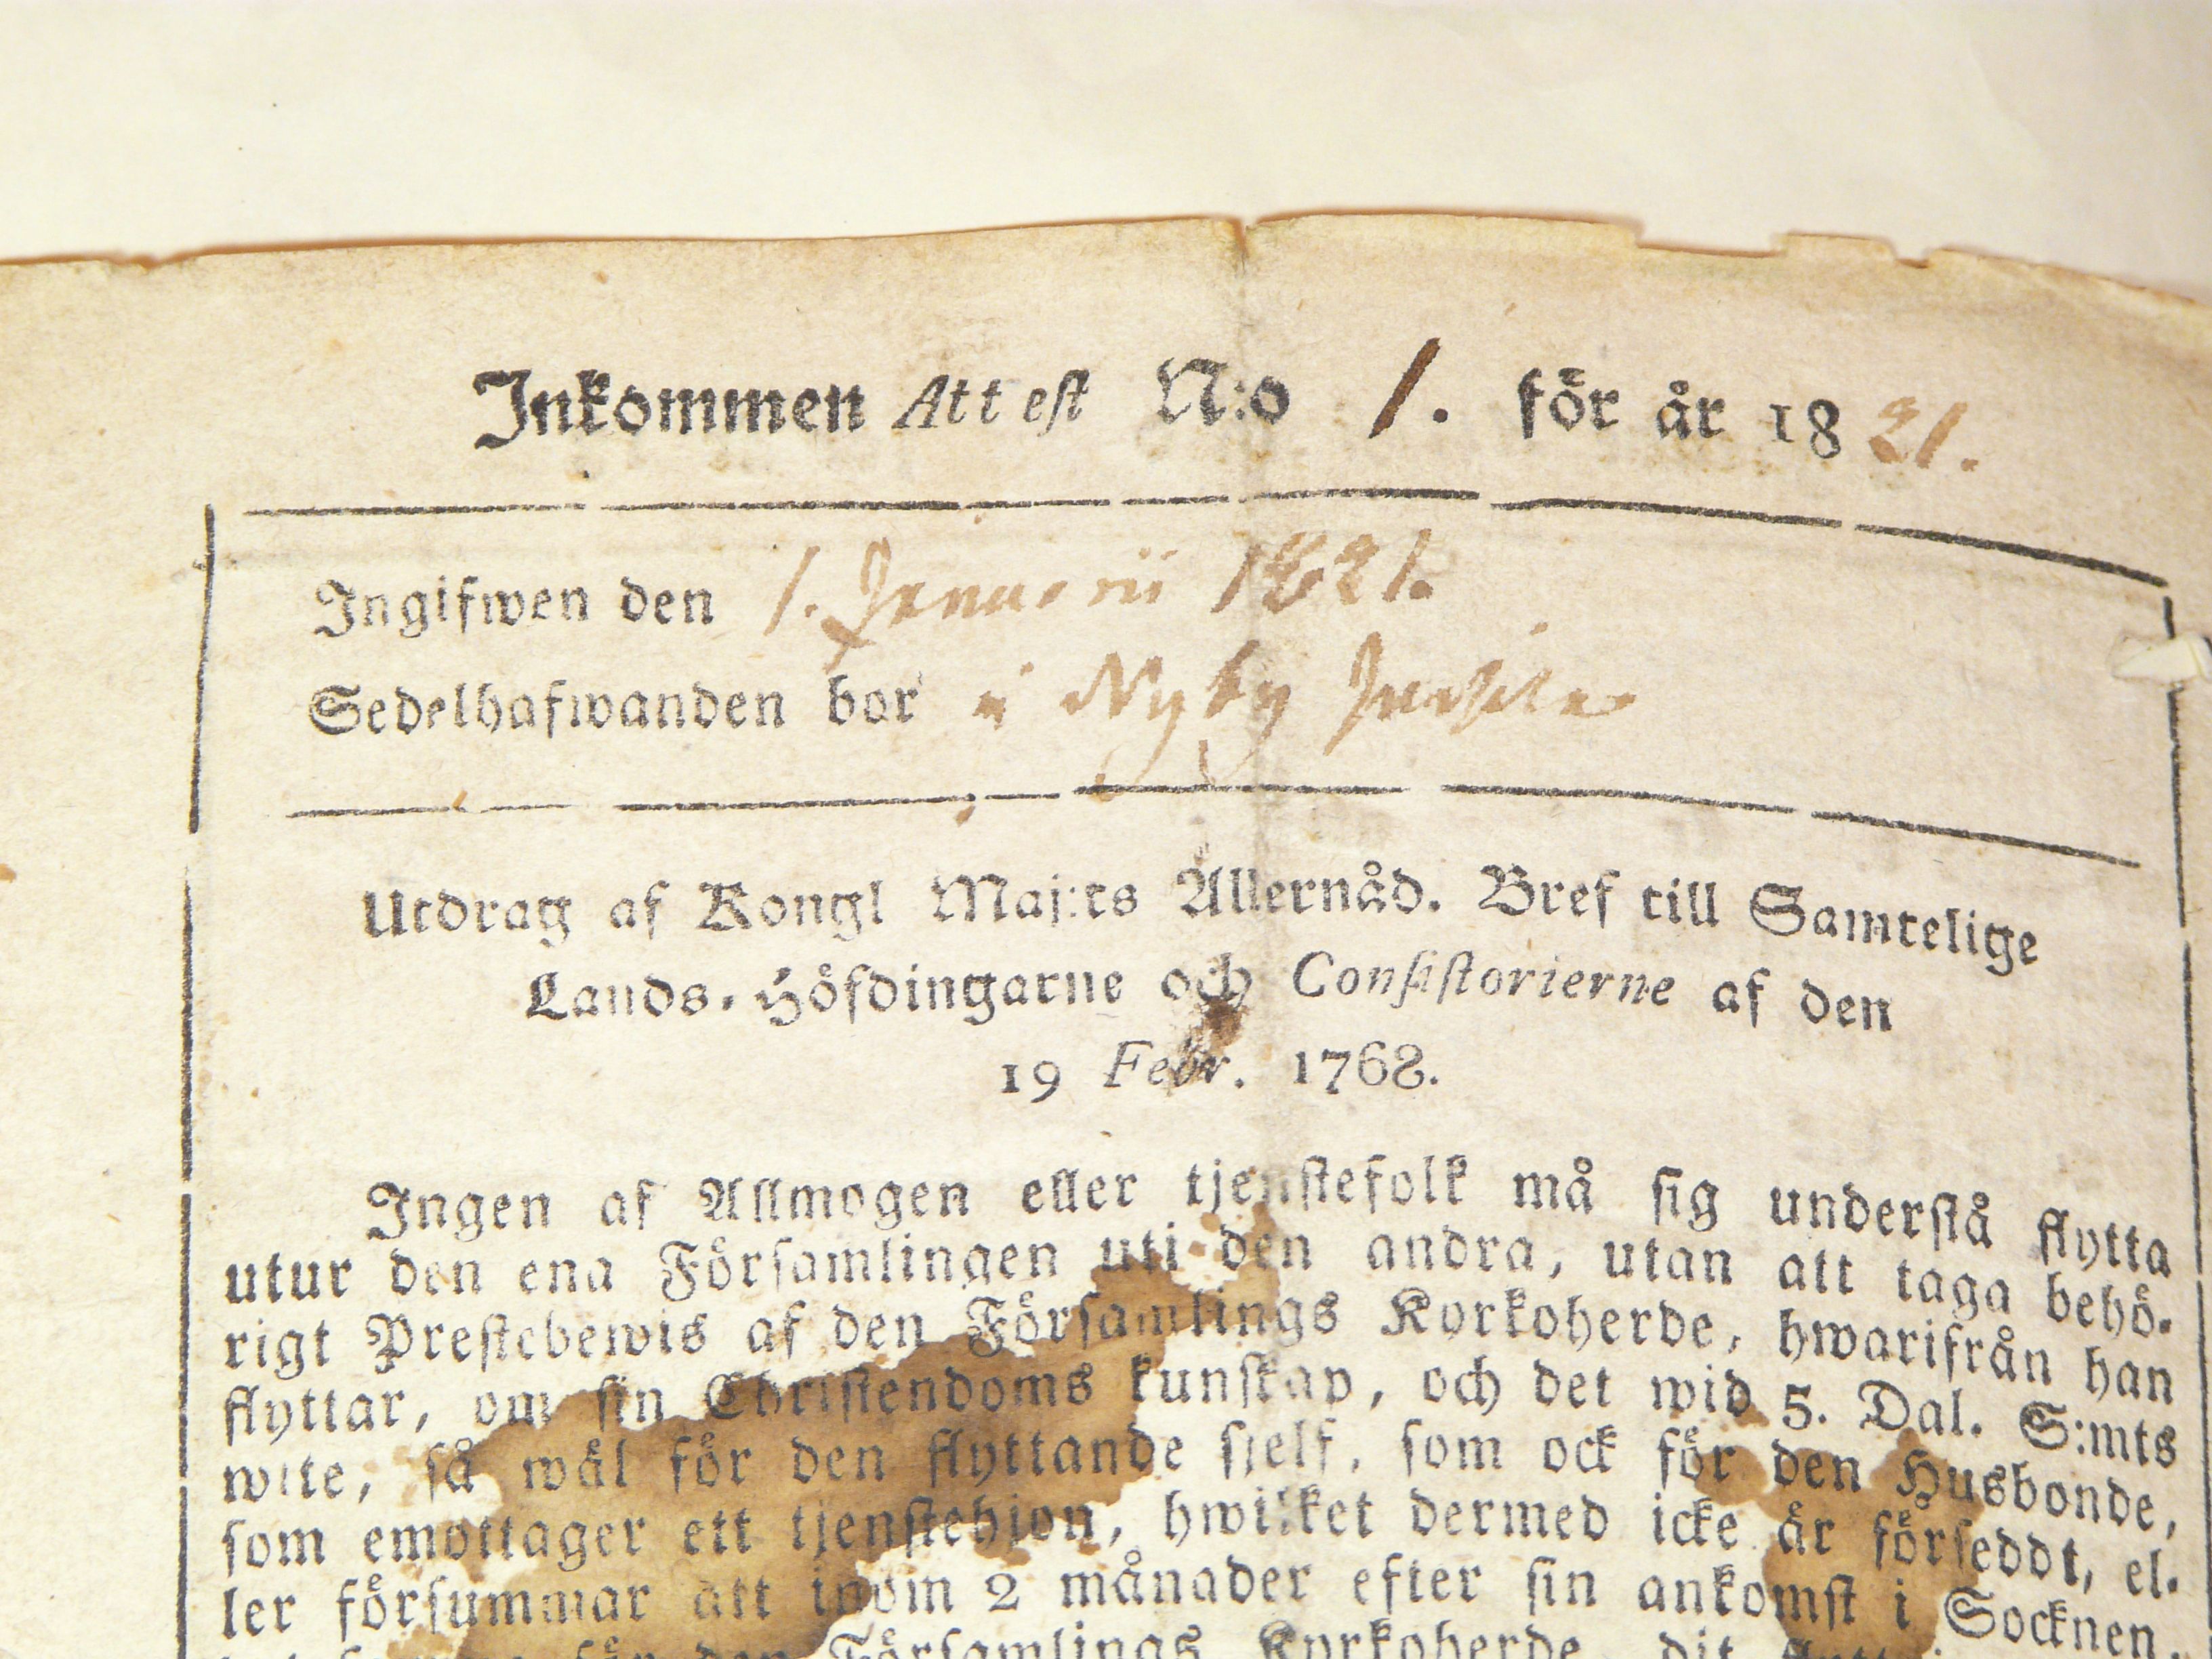 Inkommen Attest N:o 1. för år 1821.
Ingifwen den 1. Januarii 1821.
Sedelhafwanden bor i Nyby
Utdrag af Kongl Maj:ts Allernåd. Bref till Samtelige
Lands-Höfdingarne och Consistorierne af den
19 Febr. 1768.
Ingen af Allmogen eller tjenstefolk må sig understå flytta
utur den ena Församlingen uti den andra, utan att taga behö-
rigt Prestebewis af den Församlings Kyrkoherde, hwarifrån han
flyttar, om sin Christendoms kunskap, och det wid 5. Dal. S:mts
wite, så wäl för den flyttande sjelf, som ock för den Husbonde,
som emottager ett tjenstehjon, hwilket dermed icke är försedt, el-
ler försummar att inom 2 månader efter sin ankomst i Socknen,
för den Församlings Kyrkoherde, dit